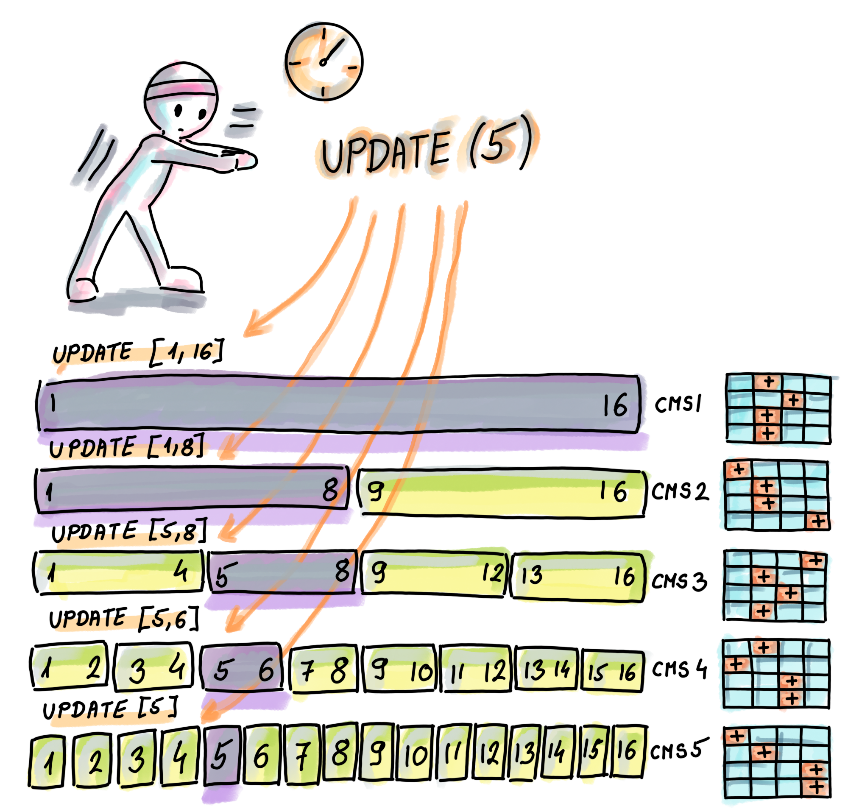 UPDATE (5)
UPDATE [1,16]
1 16 CMS1
UPDATE [1,8]
1 8 9 16 CMS2
UPDATE [5,8]
1 4 5 8 9 12 13 16 CMS3
UPDATE [5,6]
1 2 3 4 5 6 7 8 9 10 11 12 13 14 15 16 CMS4
UPDATE [5]
1 2 3 4 5 6 7 8 9 10 11 12 13 14 15 16 CMS5